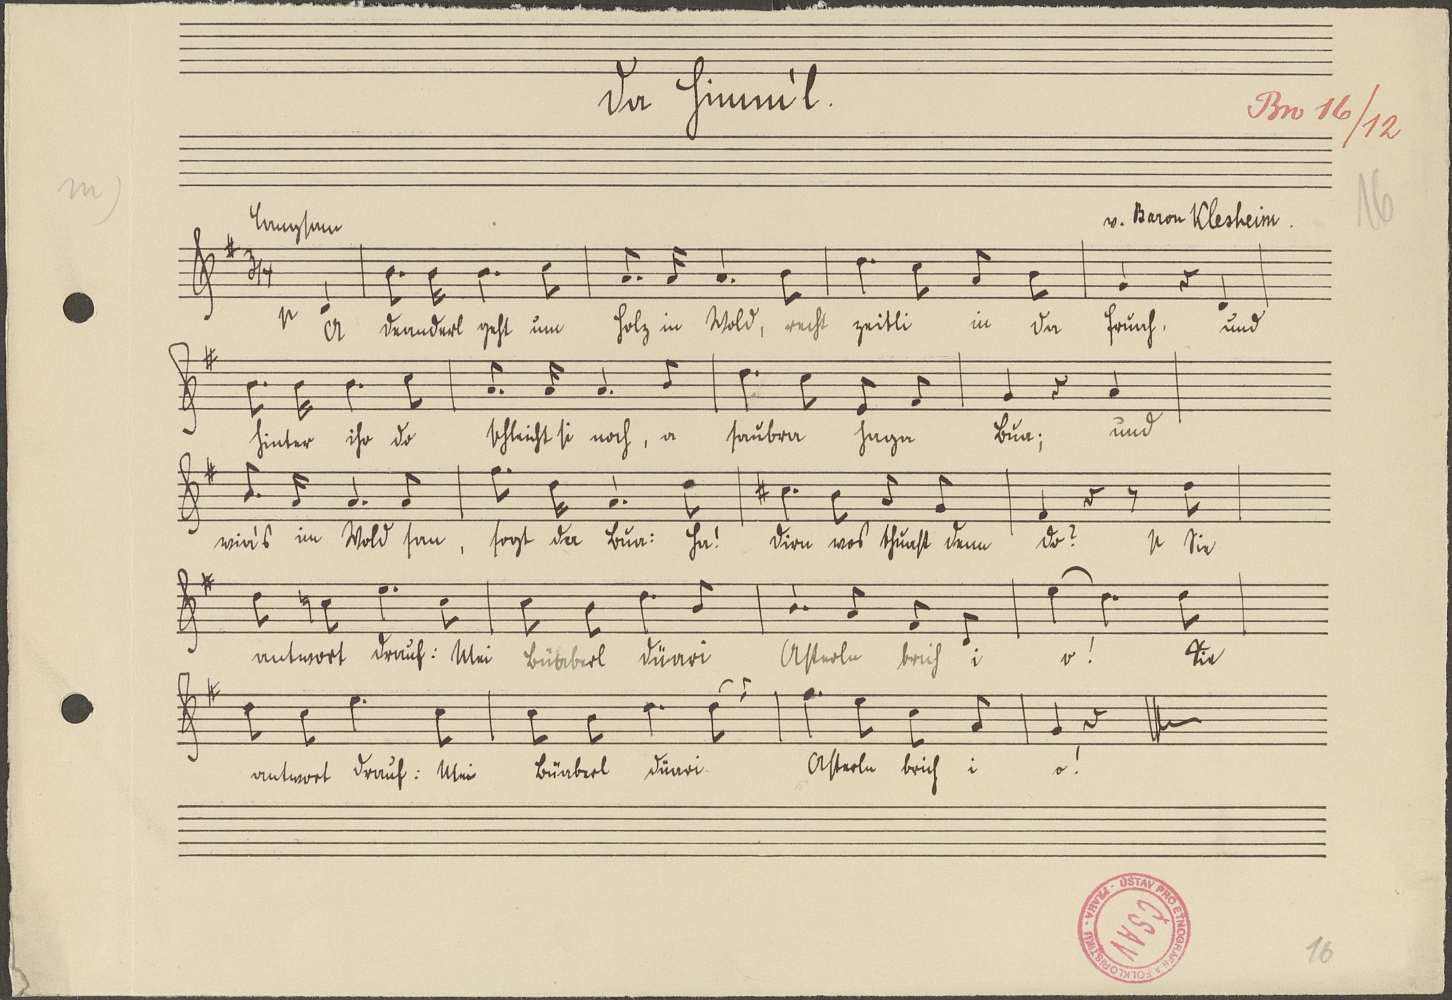 Da Himm'l.
Bro 16/12
m)
16
Langsam
v. Baron Klesheim.
3/4
p A deanderl geht um Holz in Wold, recht zeitli in da Fruah, und
hinter iho do schleicht si noch, a saubra Jaga Bua;  und
wia's im Wold san, sogt da Bua: Ha! Dirn wos thuast denn do? p Sie
antwort drauf: Mei Büaberl düari Asterln brich i o! Sie
antwort drauf: Mei Büaberl düari Asterln brich i o!
ÚSTAV PRO ETNOGRAFII A FOLKLORISTIKU - PRAHA -
ČSAV
16